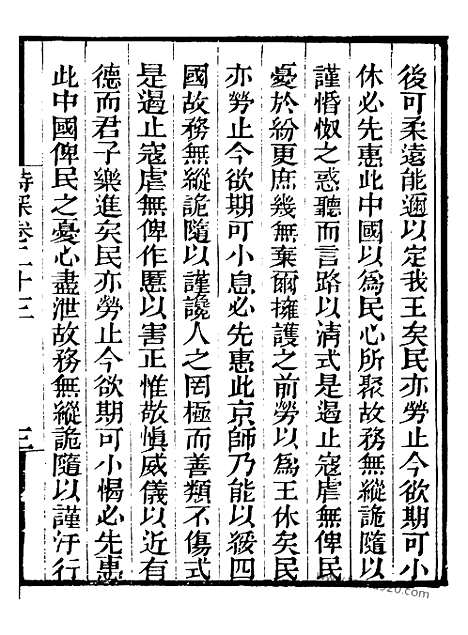 後可柔遠能邇以定我王矣民亦勞止今欲期可小
休必先惠此中國以為民心所聚故務無縱詭隨以
謹惛怓之惑聽而言路以清式是遏止寇虐無俾民
憂於紛更庶幾無棄爾擁護之前勞以為王休矣民
亦勞止今欲期可小息必先惠此京師乃能以綏四
國故務無縱詭隨以謹讒人之罔極而善類不傷式
是遏止寇虐無俾作慝以害正惟敬慎威儀以近有
德而君子樂進矣民亦勞止今欲期可小愒必先惠
此中國俾民之憂心盡泄故務無縱詭隨以謹汙行
卷二十三 三